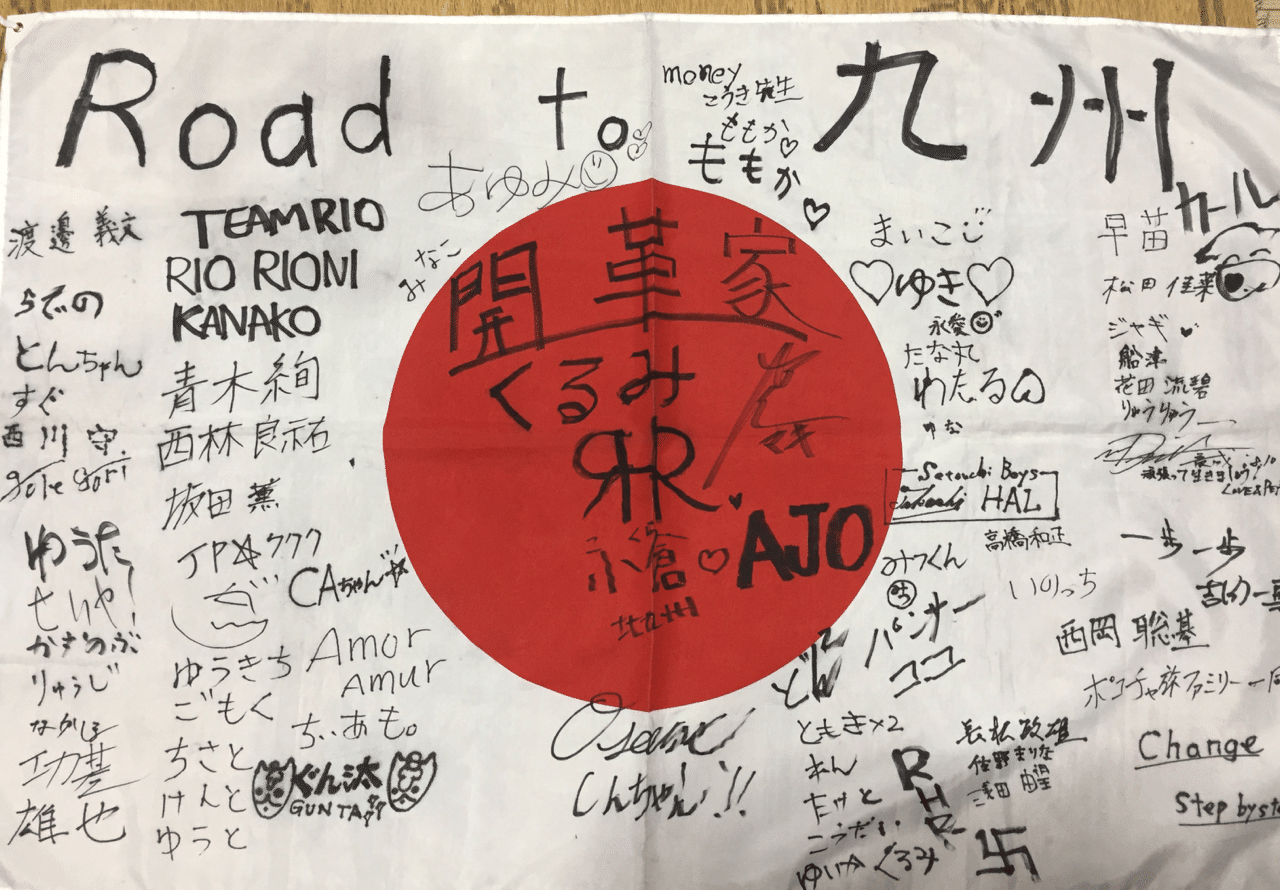 Road to 九州
money
こうき先生
ももか
ももか
あゆみ
みなこ
TEAMRIO
RIO RIONI
KANAKO
渡邊 義文
らでの
とんちゃん
すぐ
西川 守
ゆうた
せいや!
かずのぶ
りゅうじ
功基
雄也
青木絢
西林良祐
坂田 薫
JPククク
CAちゃん
ゆうきち
ごもく
ちさと
けんと
ゆうと
Amor
Amur
ちぃあも。
ぐん汰
GUNTA
開革家
くるみ
RHR
小倉
北九州
AJO
しんちゃん!!
まいこ
ゆき
永愛
たな丸
わたる
ゆな
Setouchi Boys
Takashi HAL
高橋和正
みつくん
パンサー
ココ
いのっち
ともき×2
れん
たけと
こうだい
ゆいか くるみ
RHR
長松政雄
佐野まりな
卐
カール
早苗
松田佳菜
ジャギ
船津
花田 流碧
りゅうりゅう
頑張って生きましょう!
一歩一歩
西岡 聡基
ポコチャ旅ファミリー一同
Change
Step by